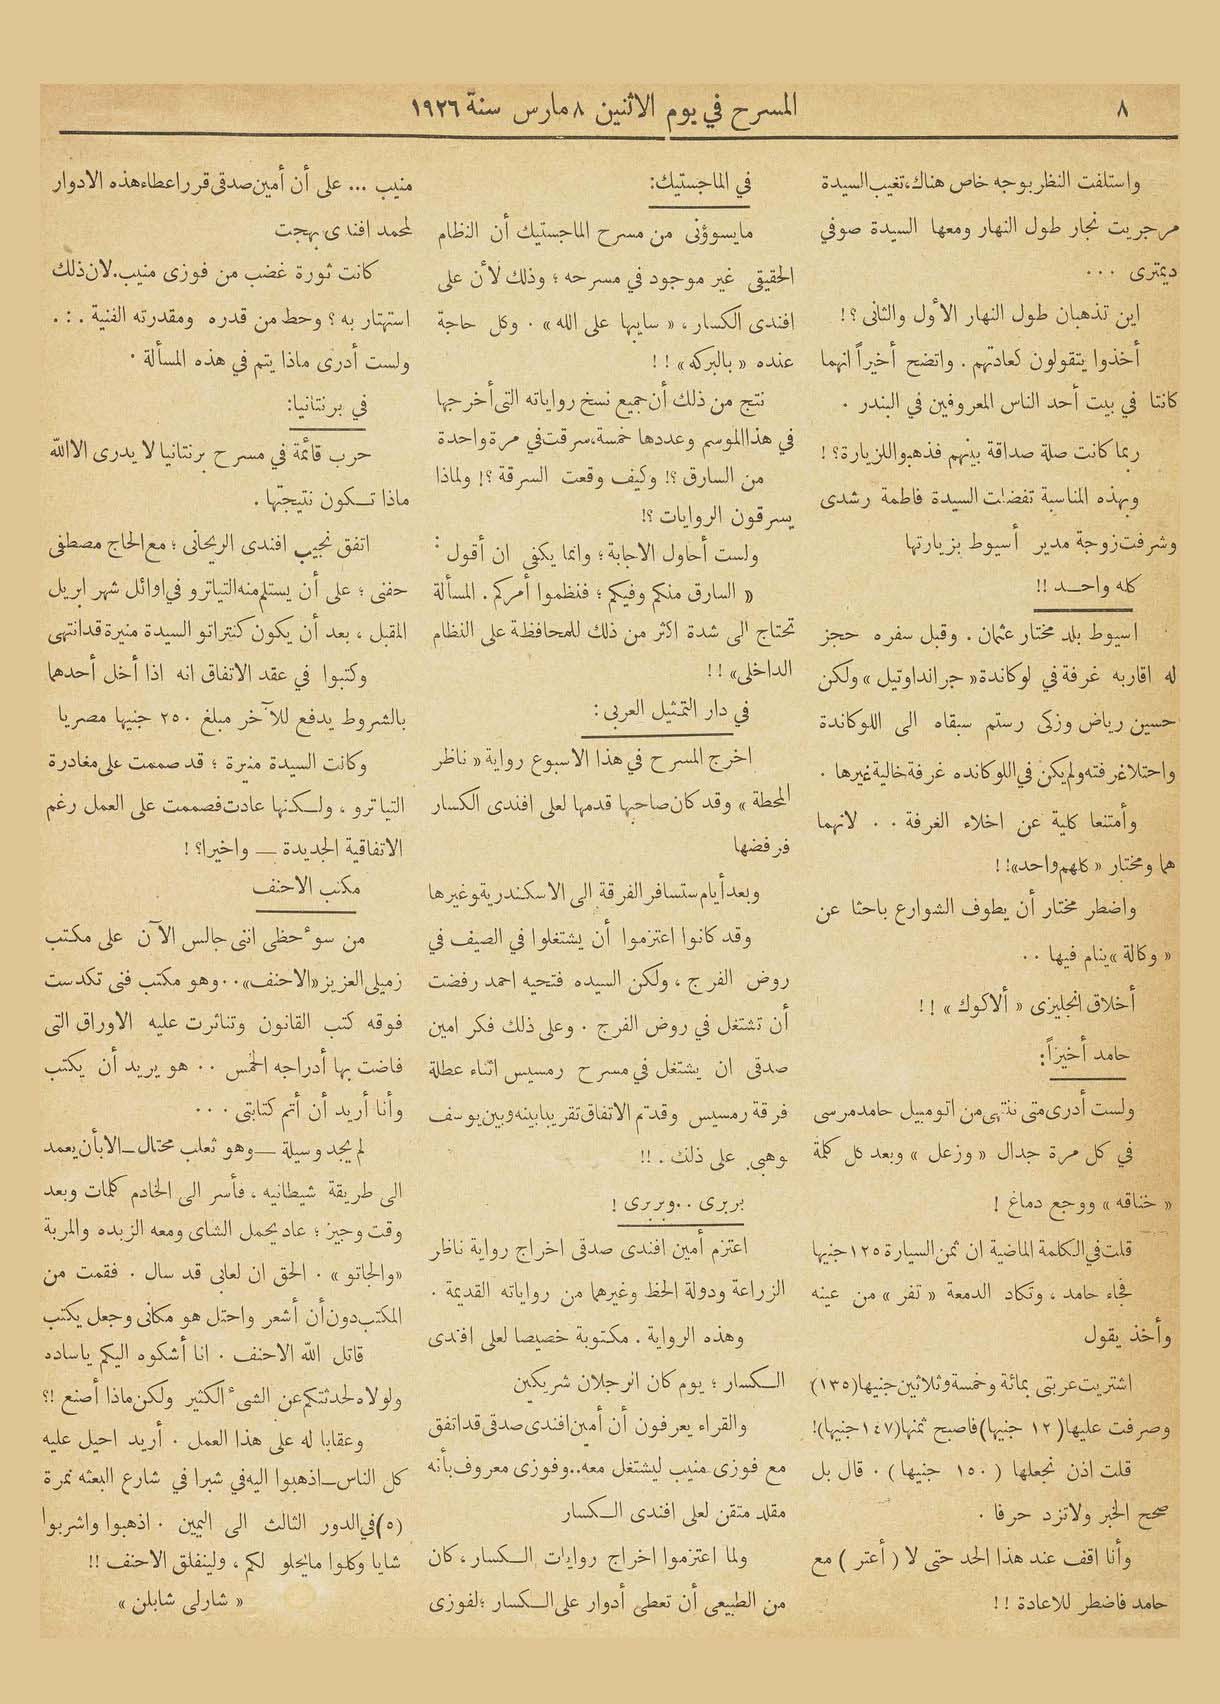 ٨
المسرح في يوم الاثنين ٨ مارس سنة ١٩٢٦
واستلفت النظر بوجه خاص هناك، تغيب السيدة
مرجريت نجار طول النهار ومعها السيدة صوفي
ديمترى ...
اين تذهبان طول النهار الأول والثانى ؟!
أخذوا يتقولون كعادتهم . واتضح أخيراً انهما
كانتا في بيت أحد الناس المعروفين في البندر .
ربما كانت صلة صداقة بينهم فذهبوا للزيارة؟ !
وبهذه المناسبة تفضلت السيدة فاطمة رشدى
وشرفت زوجة مدير أسيوط بزيارتها
كله واحـد !!
اسيوط بلد مختار عثمان . وقبل سفره حجز
له اقاربه غرفة في لوكاندة « جراند اوتيل » ولكن
حسين رياض وزكى رستم سبقاه الى اللوكاندة
واحتلا غرفته ولم يكن في اللوكانده غرفة خالية غيرها .
وأمتنعا كلية عن اخلاء الغرفة . . لانهما
هما ومختار « كلهم واحد»!!
واضطر مختار أن يطوف الشوارع باحثا عن
« وكالة » ينام فيها ..
أخلاق انجليزى « ألاكوك » !!
حامد أخيراً:
ولست أدرى متى ننتهى من اتومبيل حامد مرسى
في كل مرة جدال « وزعل » وبعد كل كلمة
« خناقه » ووجع دماغ !
قلت في الكلمة الماضية ان ثمن السيارة ١٢٥ جنيها
فجاء حامد ، وتكاد الدمعة « تفر » من عينه
وأخذ يقول
اشتريت عربتى بمائة وخمسة وثلاثين جنيها (١٣٥)
وصرفت عليها (١٢ جنيها) فاصبح ثمنها (١٤٧ جنيها)!
قلت اذن نجعلها ( ١٥٠ جنيها ) . قال بل
صحح الخبر ولا تزد حرفا .
وأنا اقف عند هذا الحد حتى لا ( أعتر ) مع
حامد فاضطر للاعادة !!
في الماجستيك:
مايسوؤنى من مسرح الماجستيك أن النظام
الحقيقى غير موجود في مسرحه ؛ وذلك لأن على
افندى الكسار ، « سايبها على الله » . وكل حاجة
عنده « بالبركه» !!
نتج من ذلك أن جميع نسخ رواياته التى أخرجها
في هذا الموسم وعددها خمسة، سرقت في مرة واحدة
من السارق ؟! وكيف وقعت السرقة ؟! ولماذا
يسرقون الروايات ؟!
ولست أحاول الاجابة ؛ وانما يكفى ان أقول :
« السارق منكم وفيكم ؛ فنظموا أمركم . المسألة
تحتاج الى شدة اكثر من ذلك للمحافظة على النظام
الداخلى» !!
في دار التمثيل العربى :
اخرج المسرح في هذا الاسبوع رواية « ناظر
المحطة » وقد كان صاحبها قدمها لعلى افندى الكسار
فرفضها
وبعد أيام ستسافر الفرقة الى الاسكندرية وغيرها
وقد كانوا اعتزموا أن يشتغلوا في الصيف في
روض الفرج ، ولكن السيده فتحيه احمد رفضت
أن تشتغل في روض الفرج . وعلى ذلك فكر امين
صدقى ان يشتغل في مسرح رمسيس اثناء عطلة
فرقة رمسيس وقد تم الاتفاق تقريبا بينه وبين يوسف
وهبى على ذلك . !!
بربرى .. وبربرى !
اعتزم أمين افندى صدقى اخراج رواية ناظر
الزراعة ودولة الحظ وغيرهما من رواياته القديمة .
وهذه الرواية . مكتوبة خصيصا لعلى افندى
الكسار ؛ يوم كان الرجلان شريكين
والقراء يعرفون أن أمين افندى صدقى قد اتفق
مع فوزى منيب ليشتغل معه.. وفوزى معروف بأنه
مقلد متقن لعلى افندى الكسار
ولما اعتزموا اخراج روايات الكسار، كان
من الطبيعى أن تعطى أدوار على الكسار ؛ لفوزى
منيب ... على أن أمين صدقى قرر اعطاء هذه الادوار
لمحمد افندى بهجت
كانت ثورة غضب من فوزى منيب. لان ذلك
استهتار به ؟ وحط من قدره ومقدرته الفنية . : .
ولست أدرى ماذا يتم في هذه المسألة .
في برنتانيا:
حرب قائمة في مسرح برنتانيا لا يدرى الا الله
ماذا تـكون نتيجتها .
اتفق نجيب افندى الريحانى ؛ مع الحاج مصطفى
حفنى ؛ على أن يستلم منه التياترو في اوائل شهر ابريل
المقبل ، بعد أن يكون كنتراتو السيدة منيرة قد انتهى
وكتبوا في عقد الاتفاق انه اذا أخل أحدهما
بالشروط يدفع للآخر مبلغ ٢٥٠ جنيها مصريا
وكانت السيدة منيرة ؛ قد صممت على مغادرة
التياترو ، ولـكنها عادت فصممت على العمل رغم
الاتفاقية الجديدة — واخيرا؟ !
مكتب الاحنف
من سوء حظى اننى جالس الآن على مكتب
زميلى العزيز «الاحنف».. وهو مكتب فنى تكدست
فوقه كتب القانون وتناثرت عليه الاوراق التى
فاضت بها أدراجه الخمس .. هو يريد أن يكتب
وأنا أريد أن أتم كتابتى ...
لم يجد وسيلة — وهو ثعلب محتال — الا بأن يعمد
الى طريقة شيطانيه ، فأسر الى الخادم كلمات وبعد
وقت وجيز ؛ عاد يحمل الشاى ومعه الزبده والمربة
«والجاتو » . الحق ان لعابى قد سال . فقمت من
المكتب دون أن أشعر واحتل هو مكانى وجعل يكتب
قاتل الله الاحنف . انا أشكوه اليكم ياساده
ولولاه لحدثتكم عن الشىء الكثير ولكن ماذا أصنع !؟
وعقابا له على هذا العمل . أريد احيل عليه
كل الناس — اذهبوا اليه في شبرا في شارع البعثه نمرة
(٥) في الدور الثالث الى اليمين . اذهبوا واشربوا
شايا وكلوا مايحلو لكم ، ولينفلق الاحنف !!
« شارلى شابلن »